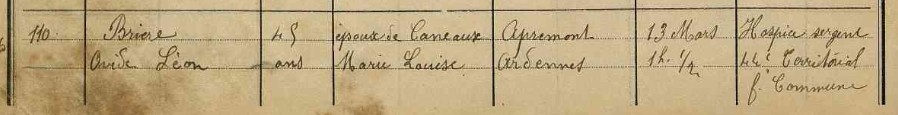 110. Briere 45 époux de Caneaux Apremont 13 Mars Hospice sergent
Ovide Léon ans Marie Louise Ardennes 1h. 1/2 44e Territorial
f. Commune